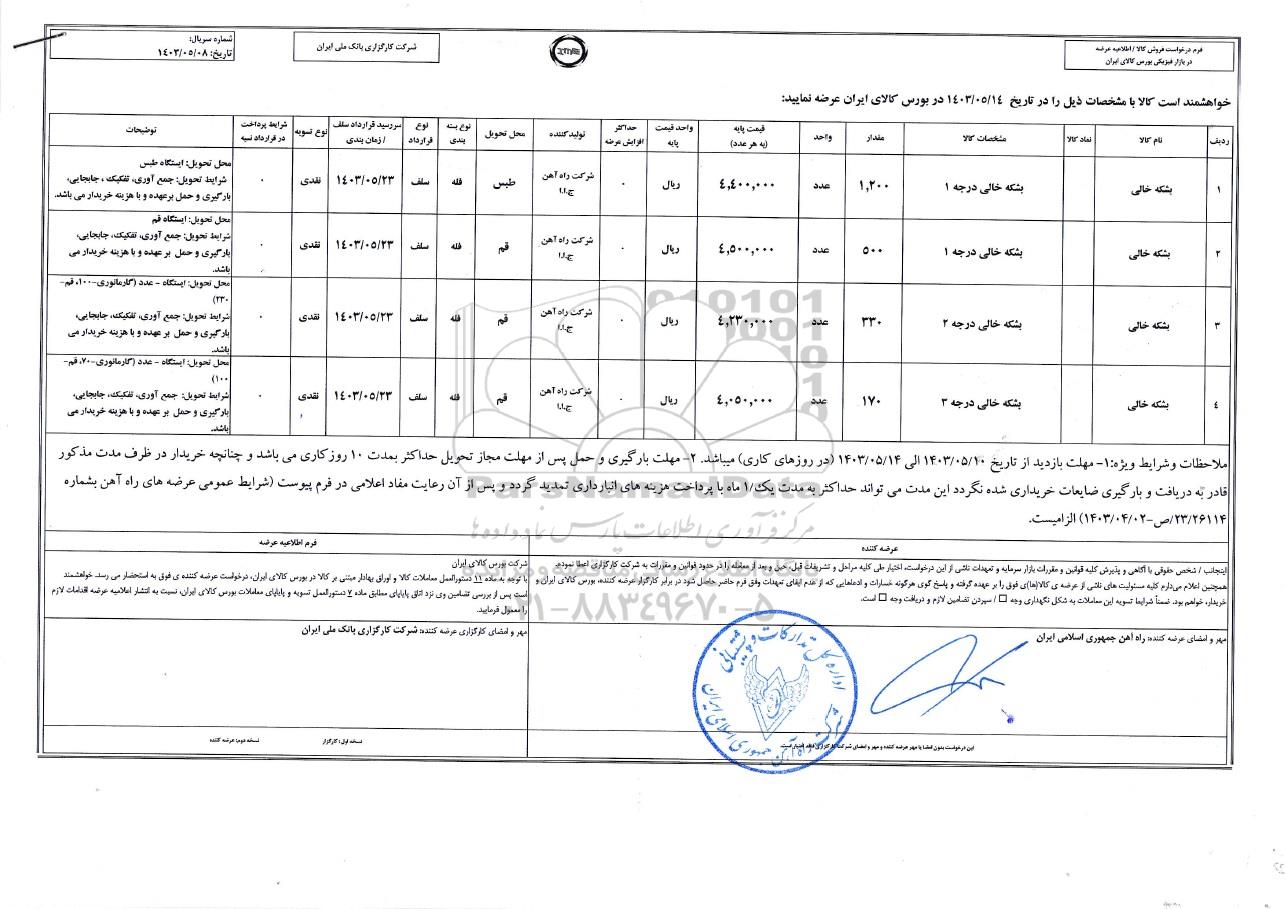 فرم درخواست فروش کالا / اطلاعیه عرضه
در بازار فیزیکی بورس کالای ایران
شرکت کارگزاری بانک ملی ایران
شماره سریال:
تاریخ: ۱٤۰۳/۰٥/۰۸
خواهشمند است کالا با مشخصات ذیل را در تاریخ ۱٤۰۳/۰٥/۱٤ در بورس کالای ایران عرضه نمایید:
ردیف | نام کالا | نماد کالا | مشخصات کالا | مقدار | واحد | قیمت پایه (به هر عدد) | واحد قیمت پایه | حداکثر افزایش عرضه | تولیدکننده | محل تحویل | نوع بسته بندی | نوع قرارداد | سررسید قرارداد سلف / زمان بندی | نوع تسویه | شرایط پرداخت در قرارداد نسیه | توضیحات
۱ | بشکه خالی | بشکه خالی درجه ۱ | ۱,۲۰۰ | عدد | ٤,٤۰۰,۰۰۰ | ریال | ۰ | شرکت راه آهن ج.ا.ا | طبس | فله | سلف | ۱٤۰۳/۰٥/۲۳ | نقدی | ۰
محل تحویل: ایستگاه طبس
شرایط تحویل: جمع آوری، تفکیک ، جابجایی،
بارگیری و حمل برعهده و با هزینه خریدار می باشد.
۲ | بشکه خالی | بشکه خالی درجه ۱ | ٥۰۰ | عدد | ٤,٥۰۰,۰۰۰ | ریال | ۰ | شرکت راه آهن ج.ا.ا | قم | فله | سلف | ۱٤۰۳/۰٥/۲۳ | نقدی | ۰
محل تحویل: ایستگاه قم
شرایط تحویل: جمع آوری، تفکیک، جابجایی،
بارگیری و حمل بر عهده و با هزینه خریدار می
باشد.
۳ | بشکه خالی | بشکه خالی درجه ۲ | ۳۳۰ | عدد | ٤,۲۳۰,۰۰۰ | ریال | ۰ | شرکت راه آهن ج.ا.ا | قم | فله | سلف | ۱٤۰۳/۰٥/۲۳ | نقدی | ۰
محل تحویل: ایستگاه - عدد (گارمانوری-۱۰۰، قم-
۲۳۰)
شرایط تحویل: جمع آوری، تفکیک، جابجایی،
بارگیری و حمل بر عهده و با هزینه خریدار می
باشد.
٤ | بشکه خالی | بشکه خالی درجه ۳ | ۱۷۰ | عدد | ٤,۰٥۰,۰۰۰ | ریال | ۰ | شرکت راه آهن ج.ا.ا | قم | فله | سلف | ۱٤۰۳/۰٥/۲۳ | نقدی | ۰
محل تحویل: ایستگاه - عدد (گارمانوری-۷۰، قم-
۱۰۰)
شرایط تحویل: جمع آوری، تفکیک، جابجایی،
بارگیری و حمل بر عهده و با هزینه خریدار می
باشد.
ملاحظات و شرایط ویژه:۱- مهلت بازدید از تاریخ ۱٤۰۳/۰٥/۱۰ الی ۱٤۰۳/۰٥/۱٤ (در روزهای کاری) میباشد. ۲- مهلت بارگیری و حمل پس از مهلت مجاز تحویل حداکثر بمدت ۱۰ روزکاری می باشد و چنانچه خریدار در ظرف مدت مذکور
قادر به دریافت و بارگیری ضایعات خریداری شده نگردد این مدت می تواند حداکثر به مدت یک/۱ ماه با پرداخت هزینه های انبارداری تمدید گردد و پس از آن رعایت مفاد اعلامی در فرم پیوست (شرایط عمومی عرضه های راه آهن بشماره
۲۳/۲۶۱۱٤/ص-۱٤۰۳/۰٤/۰۲) الزامیست.
ParsNamadData
مرکز فرآوری اطلاعات پارس نماد داده ها
پایگاه اطلاع رسانی مناقصه و مزایده
۰۲۱-۸۸۳۴۹۶۷۰-۵
عرضه کننده
اینجانب / شخص حقوقی با آگاهی و پذیرش کلیه قوانین و مقررات بازار سرمایه و تعهدات ناشی از این درخواست، اختیار طی کلیه مراحل و تشریفات قبل، حین و بعد از معامله را در حدود قوانین و مقررات به شرکت کارگزاری اعطا نموده،
همچنین اعلام می‌دارم کلیه مسئولیت های ناشی از عرضه ی کالا(ها)ی فوق را بر عهده گرفته و پاسخ گوی هرگونه خسارات و ادعاهایی که از عدم ایفای تعهدات وفق فرم حاضر حاصل شود در برابر کارگزار عرضه کننده، بورس کالای ایران و
خریدار، خواهم بود. ضمناً شرایط تسویه این معاملات به شکل نگهداری وجه □ / سپردن تضامین لازم و دریافت وجه □ است.
مهر و امضای عرضه کننده: راه آهن جمهوری اسلامی ایران
اداره کل تدارکات و پشتیبانی
شرکت راه آهن جمهوری اسلامی ایران
این درخواست بدون امضا یا مهر عرضه کننده و مهر و امضای شرکت کارگزاری فاقد اعتبار است.
فرم اطلاعیه عرضه
شرکت بورس کالای ایران
با توجه به ماده ۱۱ دستورالعمل معاملات کالا و اوراق بهادار مبتنی بر کالا در بورس کالای ایران، درخواست عرضه کننده ی فوق به استحضار می رسد. خواهشمند
است پس از بررسی تضامین وی نزد اتاق پایاپای مطابق ماده ۷ دستورالعمل تسویه و پایاپای معاملات بورس کالای ایران، نسبت به انتشار اعلامیه عرضه اقدامات لازم
را معمول فرمایید.
مهر و امضای کارگزاری عرضه کننده: شرکت کارگزاری بانک ملی ایران
نسخه اول: کارگزار
نسخه دوم: عرضه کننده